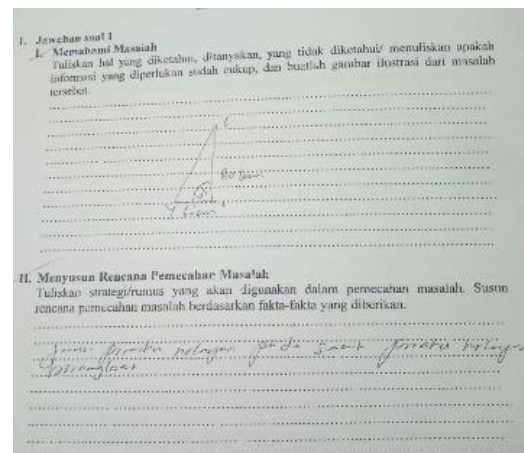 I. Jawaban soal 1
I. Memahami Masalah
Tuliskan hal yang diketahui, ditanyakan, yang tidak diketahui/ menuliskan apakah
informasi yang diperlukan sudah cukup, dan buatlah gambar ilustrasi dari masalah
tersebut.
II. Menyusun Rencana Pemecahan Masalah
Tuliskan strategi/rumus yang akan digunakan dalam pemecahan masalah. Susun
rencana pemecahan masalah berdasarkan fakta-fakta yang diberikan.
pada saat